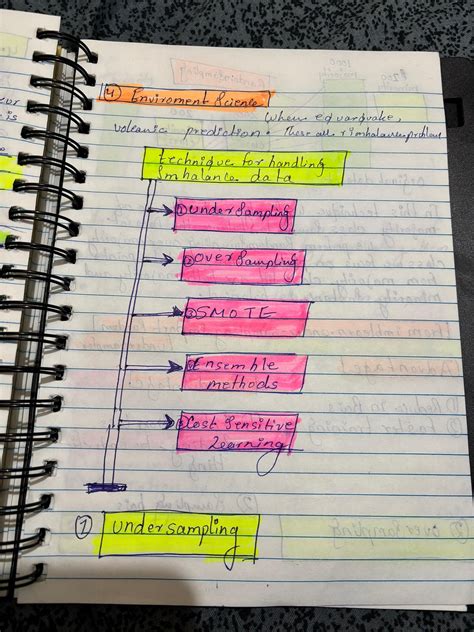 4) Enviroment Science
When eqarquake,
volcanic prediction. These all r imbalance problem
technique for handling
Imbalance data
① Under Sampling
② Over Sampling
③ SMOTE
④ Ensemble
methods
⑤ Cost Sensitive
Learning
① Undersampling